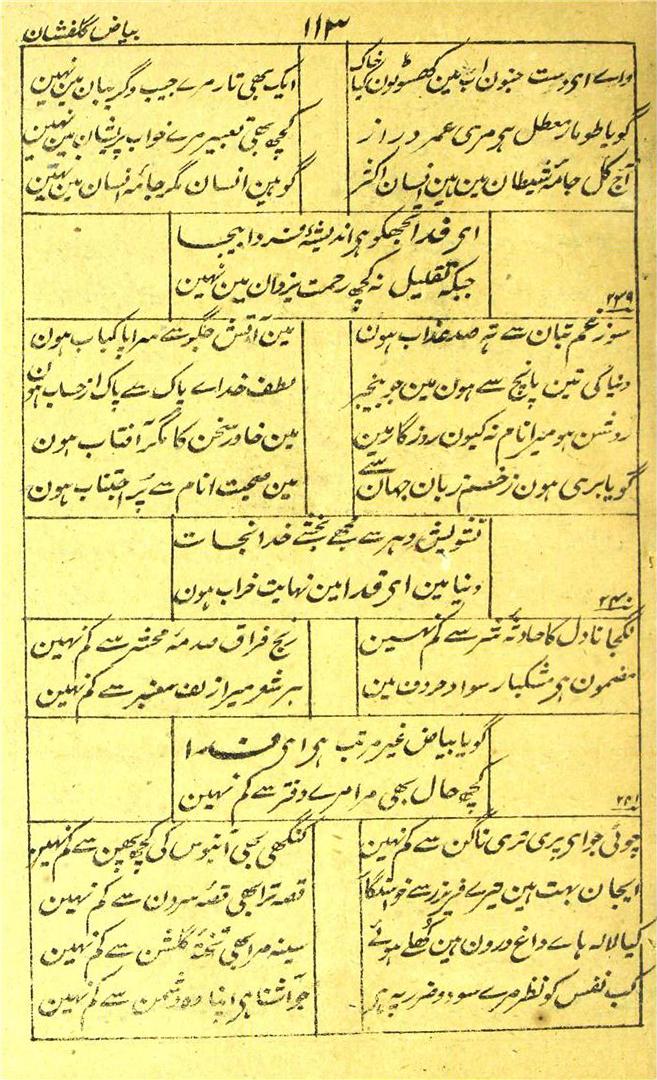 ۱۱۳ بیاض گلفشان
واے ای دست جنون اب مین کھسوٹون کیا خاک ایک بھی تار مرے جیب و گریبان مین نہین
گویا طومار معطل ہی مری عمر دراز کچھ بھی تعبیر مرے خواب پریشان مین نہین
آج کل جامۂ شیطان مین ہین انسان اکثر گو ہین انسان مگر جامۂ انسان مین نہین
ای فدا تجھکو ہی اندیشۂ فردا بیجا
جبکہ تقلیل نہ کچھ رحمت یزدان مین نہین
۲۳۹
سوز غم تبان سے تہ صد عذاب ہون مین آتش جگر سے سراپا کباب ہون
دنیا کی تین پانچ سے ہون مین جو بیخبر لطف خداے پاک سے پاک از حساب ہون
روشن ہو میرا نام نہ کیون روزگار مین مین خاور سخن کا مگر آفتاب ہون
گویا بری ہون زخم زبان جہان سے مین صحبت انام سے پر اجتناب ہون
تشویش دہر سے مجھے بخشے خدا نجات
دنیا مین ای فدا مین نہایت خراب ہون
۲۴۰
لگجانا دل کا حادثۂ شر سے کم نہین رنج فراق صدمۂ محشر سے کم نہین
مضمون ہی مشکبار سواد حروف مین ہر شعر میرا زلف معنبر سے کم نہین
گویا بیاض غیر مرتب ہی ای فدا
کچھ حال بھی مرا مرے دفتر سے کم نہین
۲۴۱
چوٹی جو ای پری تری ناگن سے کم نہین کنگھی بھی آبنوس کی کچھ پھن سے کم نہین
ایجان بہت ہین تیرے فریزر سے خواستگار قصہ ترا بھی قصۂ سرون سے کم نہین
کیا لالہ ہاے داغ درون ہین کھلے ہوئے سینہ مرا بھی تختۂ گلشن سے کم نہین
کب نفس کو نظر مرے سود و ضرر پہ ہی جو آشنا ہی اپنا وہ دشمن سے کم نہین